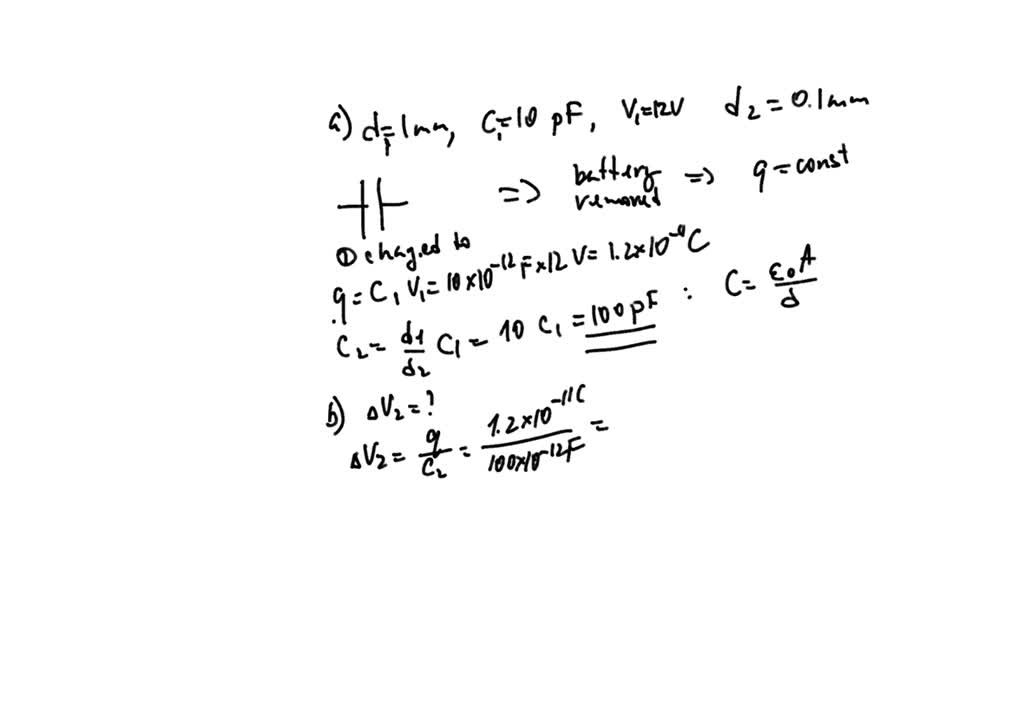 a) d₁=1mm, C₁=10 pF, V₁=12V d₂=0.1mm
=> battery removed => q=const
① charged to
q = C₁ V₁ = 10×10⁻¹² F×12 V = 1.2×10⁻¹¹ C
C₂ = d1/d2 C₁ = 10 C₁ = 100 pF : C = ε₀A/d
b) ΔV₂=?
ΔV₂ = q/C₂ = 1.2×10⁻¹¹C/100×10⁻¹²F =